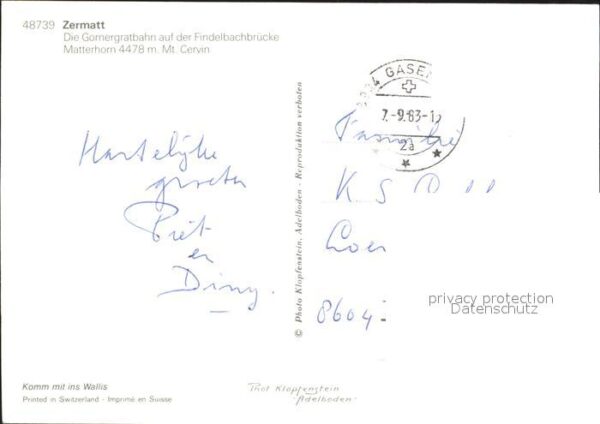 48739 Zermatt
Die Gornergratbahn auf der Findelbachbrücke
Matterhorn 4478 m. Mt. Cervin
Hartelijke
groeten
Piet
en
Diny.
© Photo Klopfenstein, Adelboden - Reproduktion verboten
GASEN
7.-9.83-1
2a
Familie
K S
8604
privacy protection
Datenschutz
Komm mit ins Wallis
Printed in Switzerland - Imprimé en Suisse
Phot Klopfenstein
Adelboden